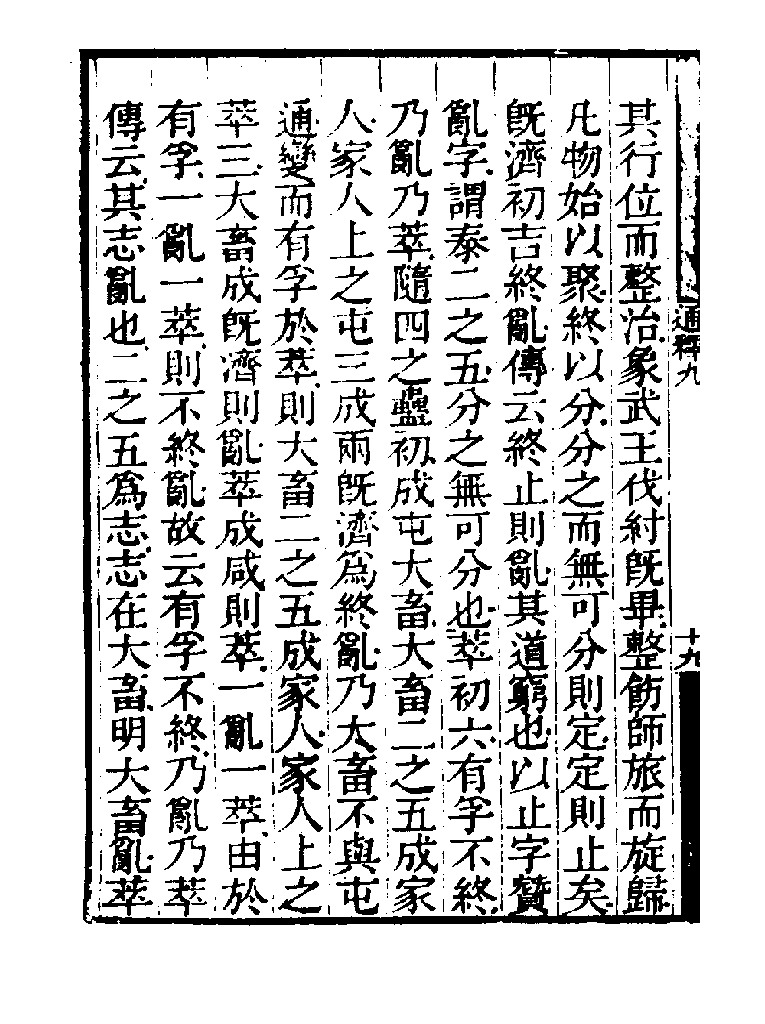 其行位而整治象武王伐紂既畢整飭師旅而旋歸
凡物始以聚終以分分之而無可分則定定則止矣
既濟初吉終亂傳云終止則亂其道窮也以止字贊
亂字謂泰二之五分之無可分也萃初六有孚不終
乃亂乃萃隨四之蠱初成屯大畜大畜二之五成家
人家人上之屯三成兩既濟爲終亂乃大畜不與屯
通變而有孚於萃則大畜二之五成家人家人上之
萃三大畜成既濟則亂萃成咸則萃一亂一萃由於
有孚一亂一萃則不終亂故云有孚不終乃亂乃萃
傳云其志亂也二之五爲志志在大畜明大畜亂萃
通釋九
十九